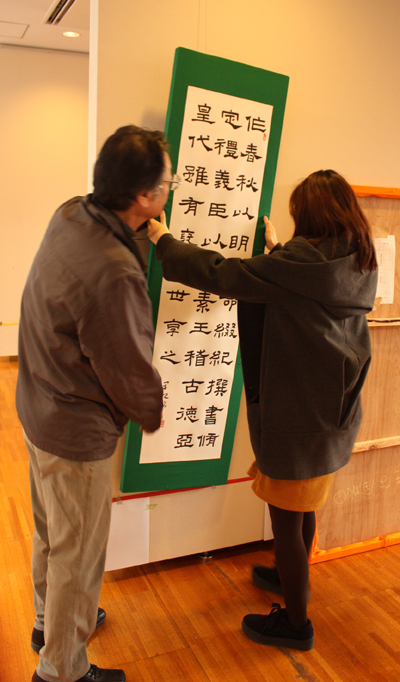 作春秋以明命綴紀撰書脩
定禮義臣以素王稽古德亞
皇代雖有襃世享之